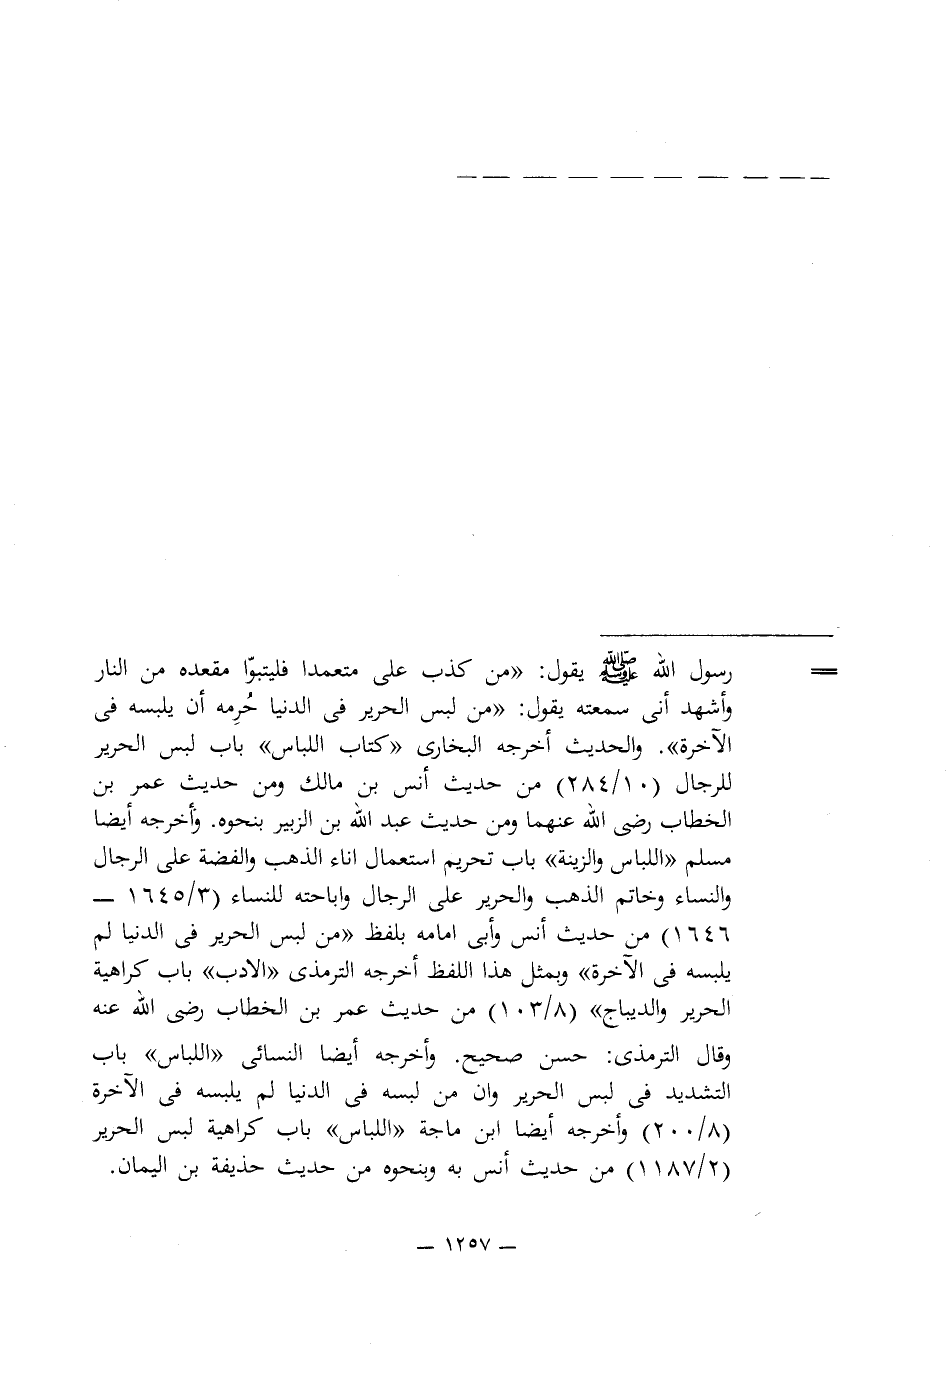 = رسول الله ﷺ يقول: «من كذب على متعمدا فليتبوّا مقعده من النار
وأشهد أنى سمعته يقول: «من لبس الحرير فى الدنيا حُرِمه أن يلبسه فى
الآخرة». والحديث أخرجه البخارى «كتاب اللباس» باب لبس الحرير
للرجال (٢٨٤/١٠) من حديث أنس بن مالك ومن حديث عمر بن
الخطاب رضى الله عنهما ومن حديث عبد الله بن الزبير بنحوه. وأخرجه أيضا
مسلم «اللباس والزينة» باب تحريم استعمال اناء الذهب والفضة على الرجال
والنساء وخاتم الذهب والحرير على الرجال واباحته للنساء (١٦٤٥/٣ —
١٦٤٦) من حديث أنس وأبى امامه بلفظ «من لبس الحرير فى الدنيا لم
يلبسه فى الآخرة» وبمثل هذا اللفظ أخرجه الترمذى «الادب» باب كراهية
الحرير والديباج» (١٠٣/٨) من حديث عمر بن الخطاب رضى الله عنه
وقال الترمذى: حسن صحيح. وأخرجه أيضا النسائى «اللباس» باب
التشديد فى لبس الحرير وان من لبسه فى الدنيا لم يلبسه فى الآخرة
(٢٠٠/٨) وأخرجه أيضا ابن ماجة «اللباس» باب كراهية لبس الحرير
(١١٨٧/٢) من حديث أنس به وبنحوه من حديث حذيفة بن اليمان.
— ١٢٥٧ —